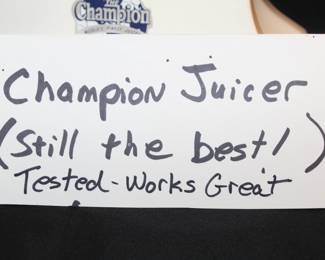 The
Champion
Champion Juicer
(Still the best!)
Tested-Works Great